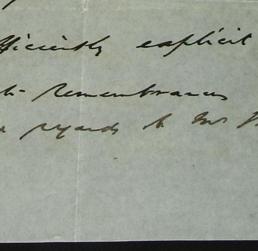 fficiently explicit
remembrances
regards to Mr